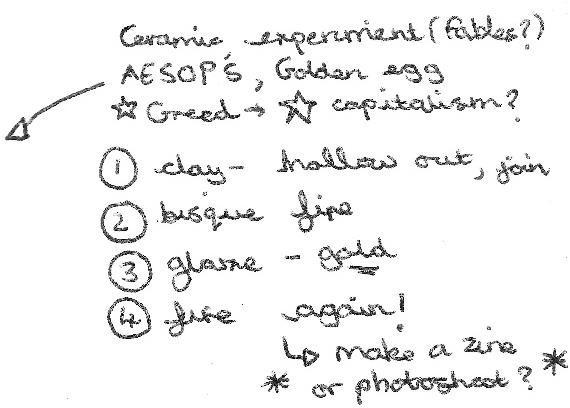 Ceramic experiment (Fables?)
AESOP'S, Golden egg
☆ Greed → ☆ capitalism?
① clay - hollow out, join
② bisque fire
③ glaze - gold
④ fire again!
↳ make a zine
* or photoshoot? *